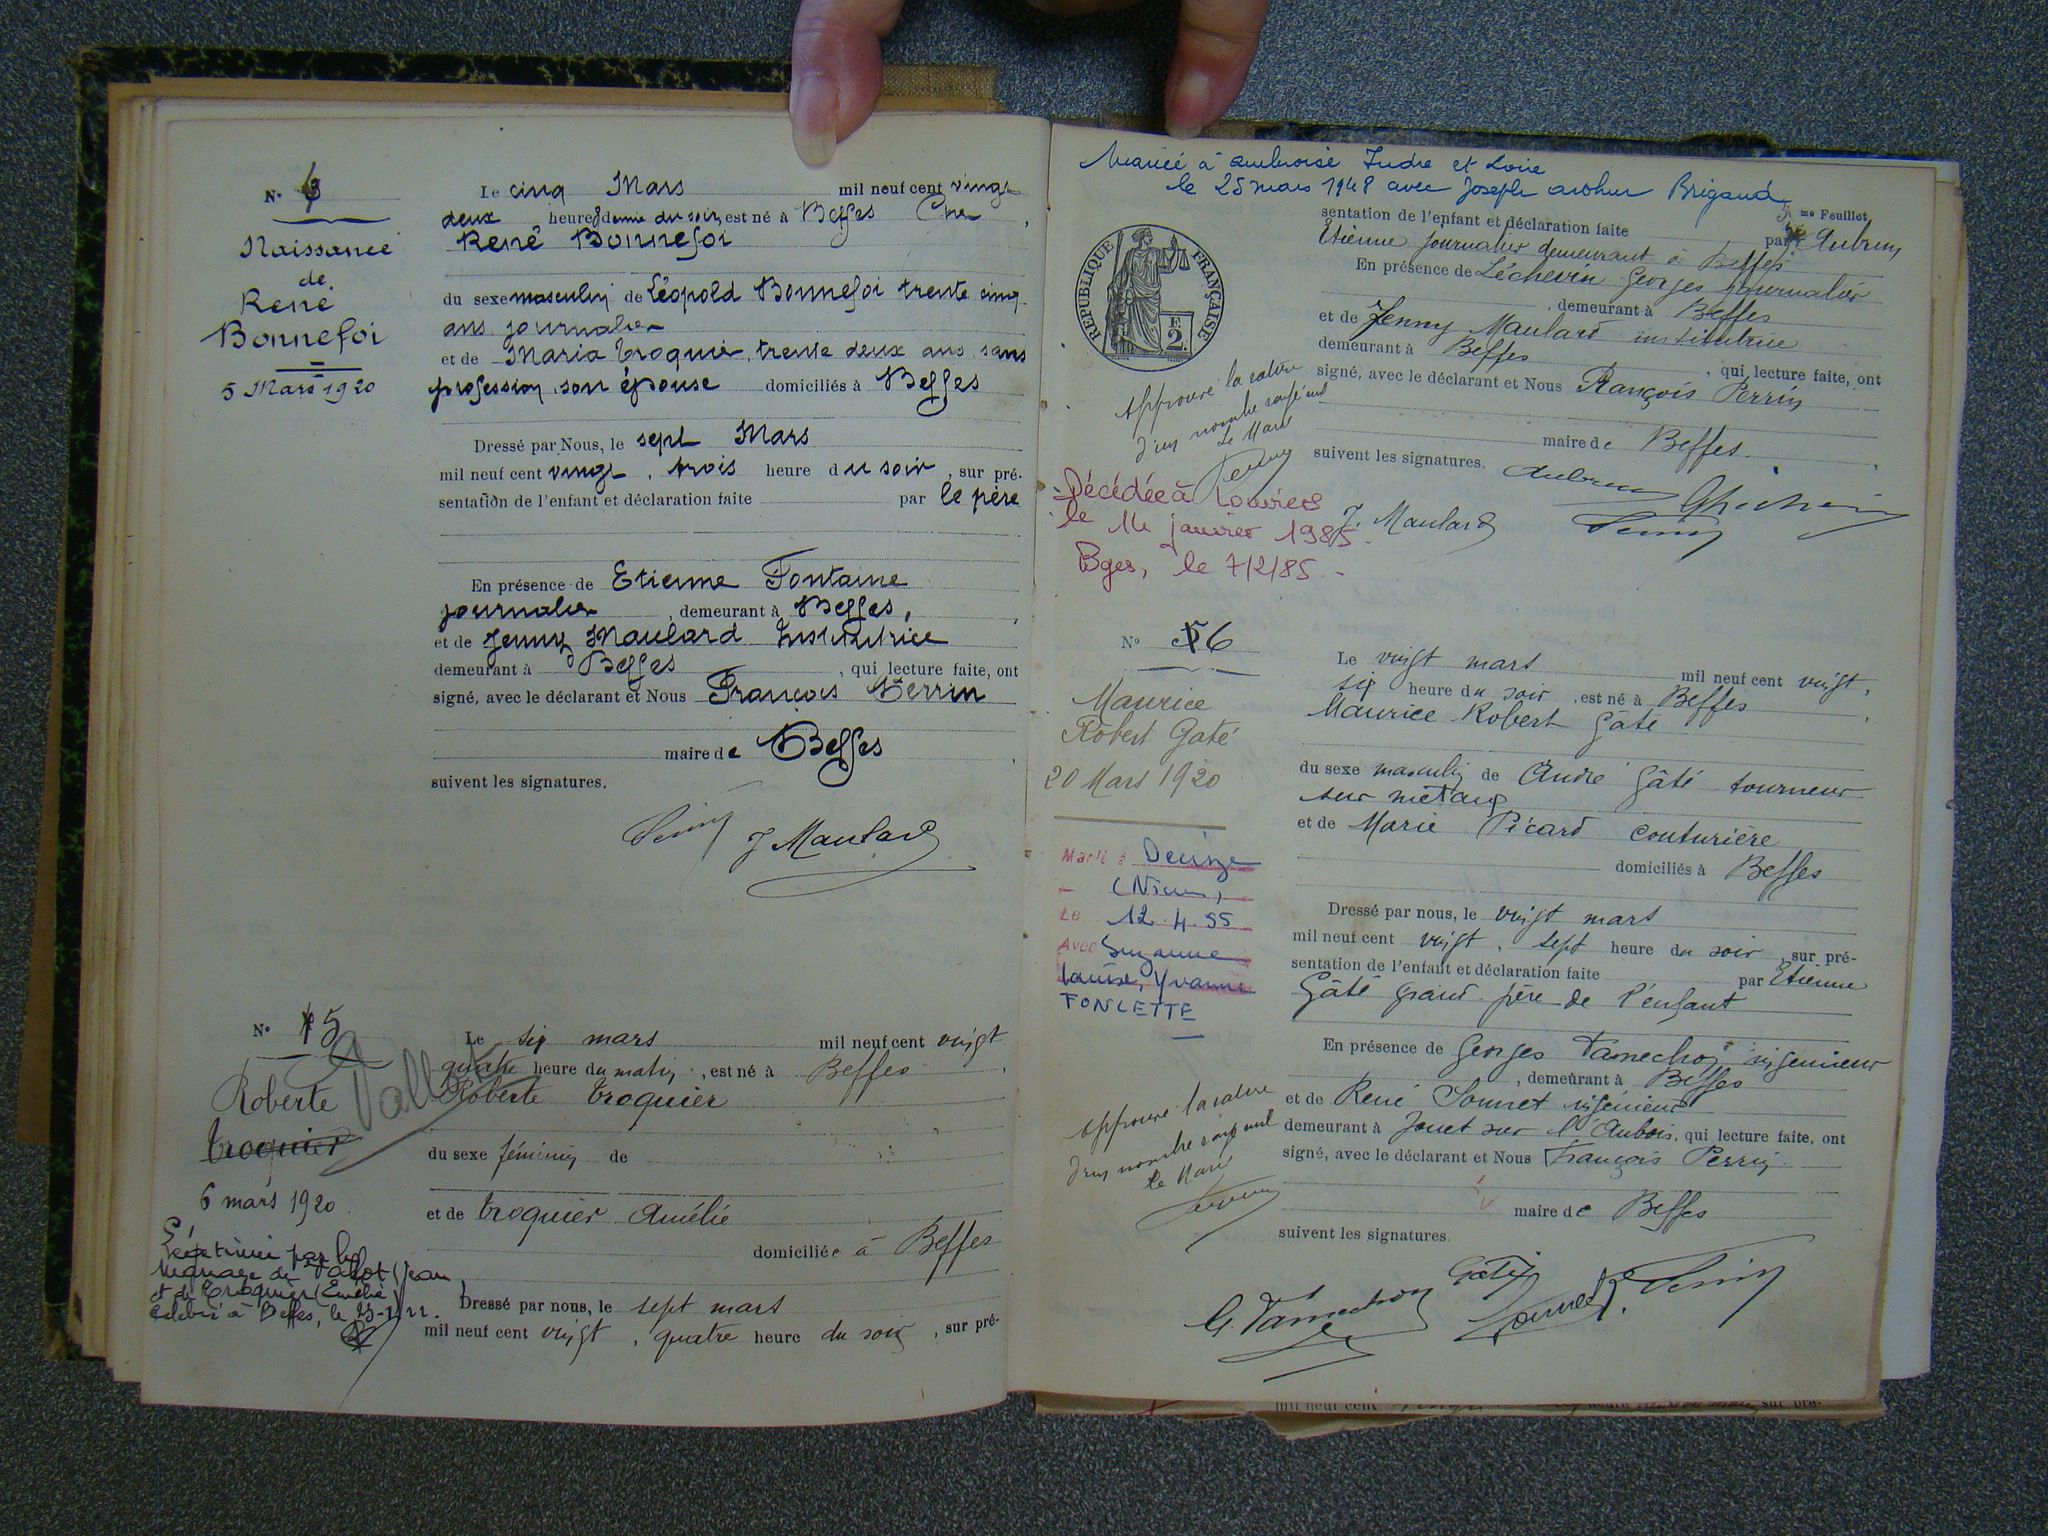 Naissance
de
René
Bonnefoi
5 Mars 1920
Le cinq Mars mil neuf cent vingt
deux heures demie du soir est né à Beffes Cher
René Bonnefoi
du sexe masculin de Léopold Bonnefoi trente cinq
ans journalier
et de Maria Troquier, trente deux ans sans
profession, son épouse domiciliés à Beffes
Dressé par Nous, le sept Mars
mil neuf cent vingt, trois heure du soir, sur pré-
sentation de l'enfant et déclaration faite par le père
En présence de Etienne Fontaine
journalier, demeurant à Beffes,
et de Jenny Maulard Institutrice
demeurant à Beffes, qui lecture faite, ont
signé, avec le déclarant et Nous François Perrin
maire de Beffes
suivent les signatures.
Perrin J Maulard
N° 5
Roberte Vallot
Troquier
6 mars 1920
Légitimée par le
mariage de Vallot (Jean)
et de Troquier (Emélie)
célébré à Beffes, le
Le six mars mil neuf cent vingt
quatre heure du matin, est né à Beffes
Roberte Troquier
du sexe féminin de
et de Troquier Amélie
domiciliée à Beffes
Dressé par nous, le sept mars
mil neuf cent vingt, quatre heure du soir, sur pré-
Mariée à Amboise Indre et Loire
le 25 mars 1948 avec Joseph Arthur Brigaud
me Feuillet
REPUBLIQUE FRANÇAISE
F.
2.
sentation de l'enfant et déclaration faite par Aubrun
Etienne journalier demeurant à Beffes
En présence de Léchevin Georges journalier
, demeurant à Beffes
et de Jenny Maulard institutrice
demeurant à Beffes, qui lecture faite, ont
signé, avec le déclarant et Nous François Perrin
maire de Beffes.
suivent les signatures.
Approuvé la rature
d'un nombre rayé nul
Le Maire
Perrin
Aubrun
J. Maulard Perrin
Décédée à Louviers
le 14 janvier 1985.
Bges, le 7/2/85.
N° 56
Maurice
Robert Gaté
20 Mars 1920
Marié à Decize
(Nièvre)
Le 12.4.55
Avec Suzanne
Louise, Yvonne
FONLETTE
Approuvé la rature
d'un nombre rayé nul
Le Maire
Perrin
Le vingt mars mil neuf cent vingt,
six heure du soir, est né à Beffes
Maurice Robert Gâté
du sexe masculin de André Gâté tourneur
sur métaux
et de Marie Picard couturière
domiciliés à Beffes
Dressé par nous, le vingt mars
mil neuf cent vingt, sept heure du soir, sur pré-
sentation de l'enfant et déclaration faite par Etienne
Gâté grand-père de l'enfant
En présence de Georges Tamechon ingénieur
, demeurant à Beffes
et de René Sonnet ingénieur
demeurant à Jouet sur l'Aubois, qui lecture faite, ont
signé, avec le déclarant et Nous François Perrin
maire de Beffes
suivent les signatures.
Gâté
G. Tamechon Perrin
mil neuf cent